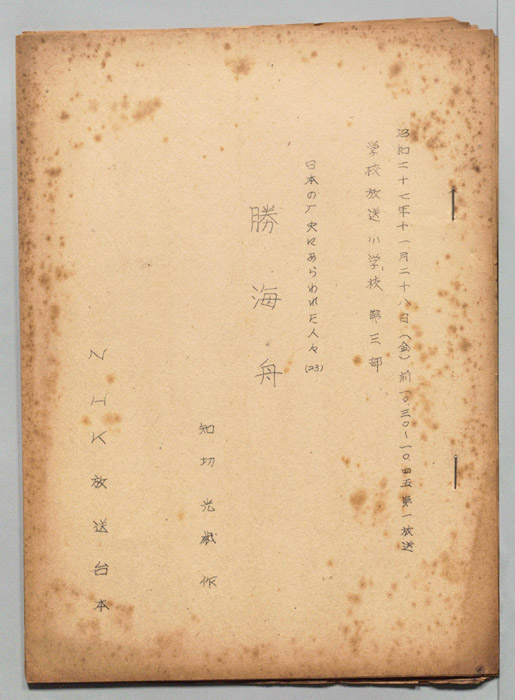 昭和二十七年十一月二十八日(金)前一〇.三〇〜一〇.四五第一放送
学校放送小学校 第三部
日本の歴史にあらわれた人々(23)
勝海舟
知切光歳作
NHK放送台本